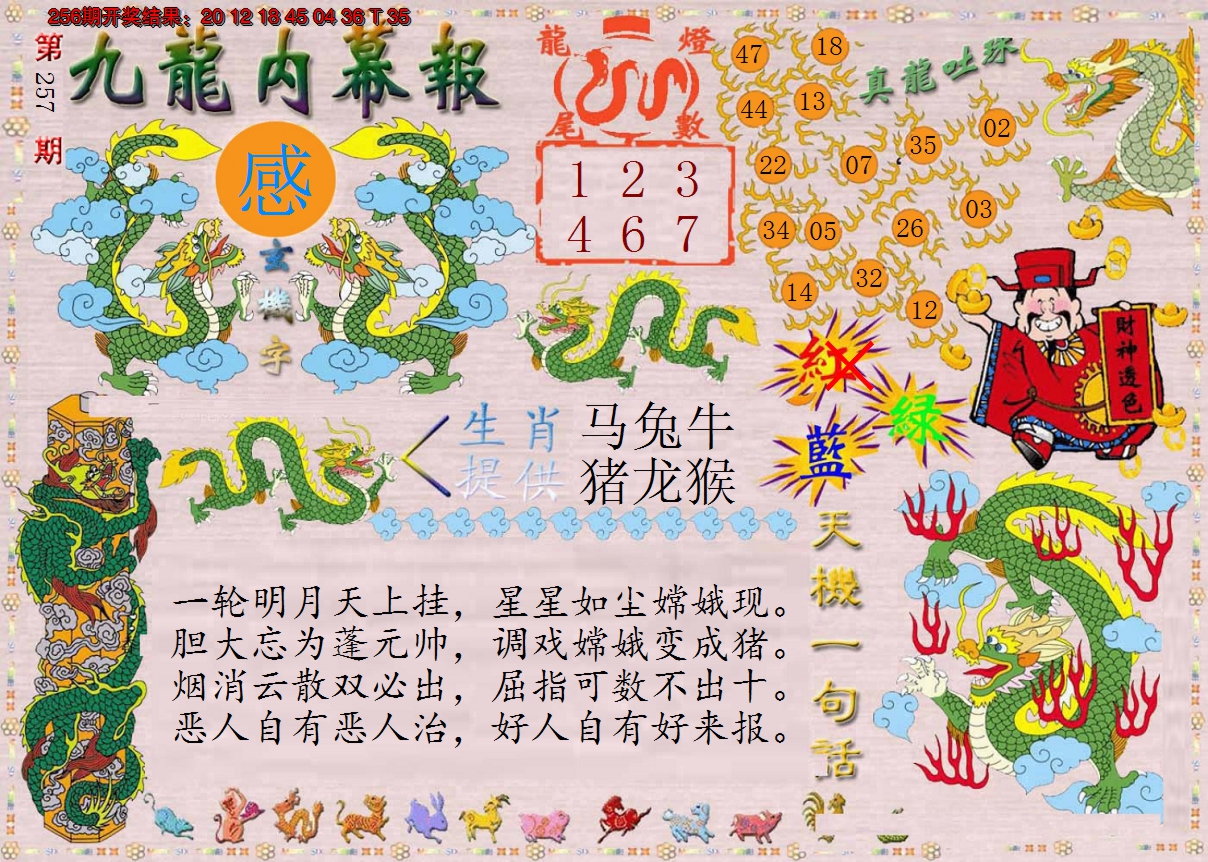 256期开奖结果：20 12 18 45 04 36 T 35
第257期
九龍内幕報
感
玄機字
龍燈
尾數
1 2 3
4 6 7
真龍吐珠
47 18
44 13
35 02
22 07
03
34 05 26
32
14 12
財神透色
紅
綠
藍
生肖 马兔牛
提供 猪龙猴
天機一句话
一轮明月天上挂，星星如尘嫦娥现。
胆大忘为蓬元帅，调戏嫦娥变成猪。
烟消云散双必出，屈指可数不出十。
恶人自有恶人治，好人自有好来报。